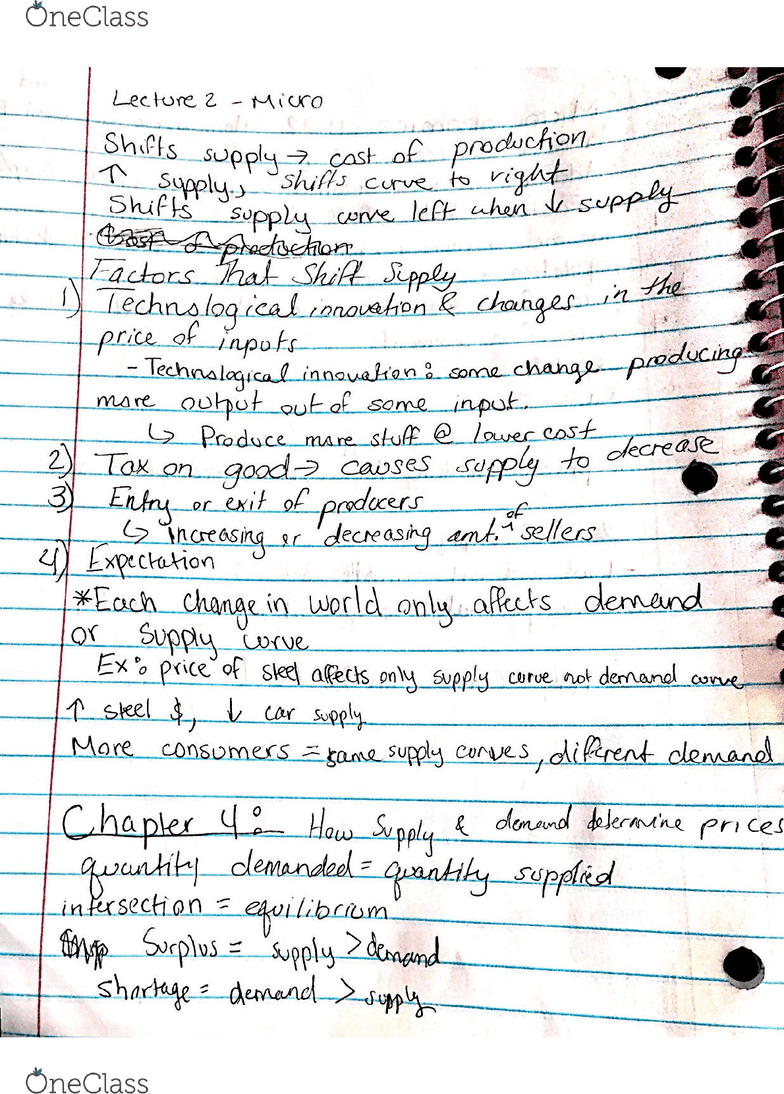 OneClass
Lecture 2 - Micro
Shifts supply → cost of production
↑ supply, shifts curve to right
Shifts supply curve left when ↓ supply
Cost of production
Factors That Shift Supply
1) Technological innovation & changes in the
price of inputs
- Technological innovation: some change producing
more output out of some input.
↳ Produce more stuff @ lower cost
2) Tax on good → causes supply to decrease
3) Entry or exit of producers
↳ increasing or decreasing amt. of sellers
4) Expectation
*Each change in world only affects demand
or supply curve
Ex: price of steel affects only supply curve not demand curve
↑ steel $, ↓ car supply
More consumers = same supply curves, different demand
Chapter 4: How Supply & demand determine prices
quantity demanded = quantity supplied
intersection = equilibrium
Surplus = supply > demand
shortage = demand > supply
OneClass